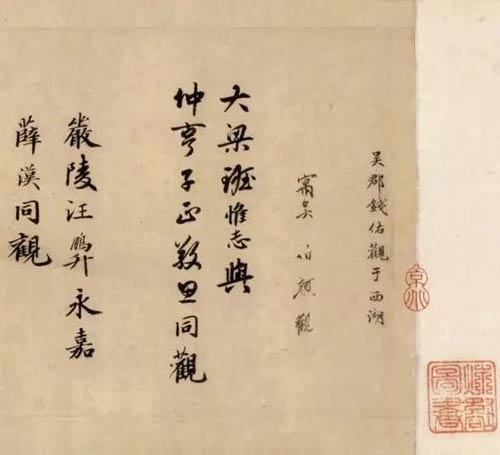 吳郡錢佑觀于西湖
甯良伯顏觀
大梁班惟志與
仲亨子正敬思同觀
嚴陵汪鵬升永嘉
薛漢同觀